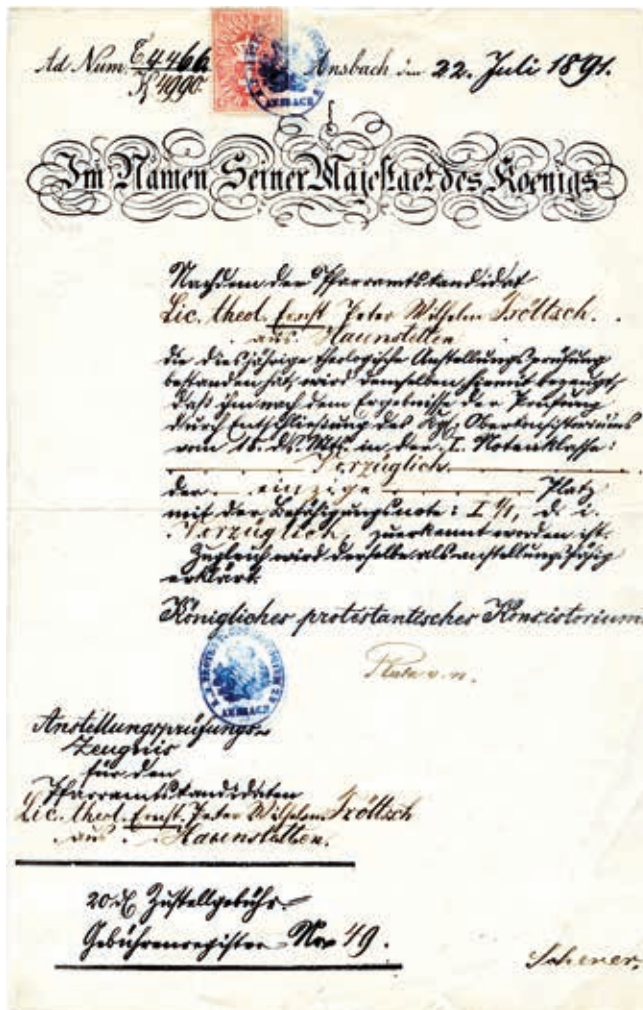 Ad Num. E 4466 Ansbach den 22. Juli 1891.
K 4990.
Im Namen Seiner Majestaet des Koenigs
Nachdem der Pfarramtskandidat
Lic. theol. Ernst Peter Wilhelm Tröltsch.
aus Haunstetten
die diesjährige theologische Anstellungsprüfung
bestanden hat, wird demselben hiemit bezeugt,
daß ihm nach dem Ergebnisse der Prüfung
durch Entschließung des Kgl. Oberkonsistoriums
vom 18. ds. Mts. in der I. Notenklasse:
Vorzüglich
der einzige Platz
mit der Befähigungsnote: I 1/1, d. i.
Vorzüglich, zuerkannt worden ist.
Zugleich wird derselbe als anstellungsfähig
erklärt.
Königliches protestantisches Konsistorium.
ANSBACH
Anstellungsprüfungs-
Zeugnis
für den
Pfarramtskandidaten
Lic. theol. Ernst Peter Wilhelm Tröltsch
aus Haunstetten.
20 ₰ Zustellgebühr
Gebührenregister No 49.
Scherer.